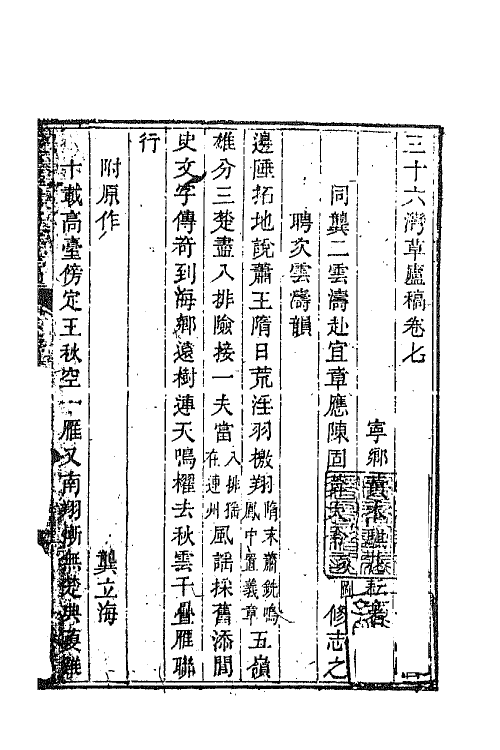 三十六灣草廬稿卷七
寧鄉
同龔二雲濤赴宜章應陳固修志之
聘次雲濤韻
邊陲拓地說蕭王隋日荒淫羽檄翔隋末蕭銑鳴鳳中置義章五嶺
雄分三楚盡入排險接一夫當入排猺在連州風謡採舊添聞
史文字傳奇到海鄉遠樹連天鳴櫂去秋雲千疊雁聯
行
附原作 龔立海
十載高臺傍定王秋空一雁又南翔慚無楚